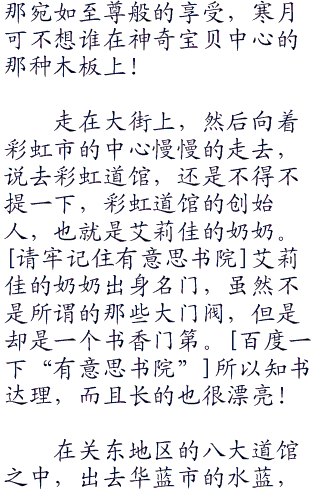 那宛如至尊般的享受，寒月
可不想谁在神奇宝贝中心的
那种木板上！
走在大街上，然后向着
彩虹市的中心慢慢的走去，
说去彩虹道馆，还是不得不
提一下，彩虹道馆的创始
人，也就是艾莉佳的奶奶。
[请牢记住有意思书院]艾莉
佳的奶奶出身名门，虽然不
是所谓的那些大门阀，但是
却是一个书香门第。[百度一
下“有意思书院”]所以知书
达理，而且长的也很漂亮！
在关东地区的八大道馆
之中，出去华蓝市的水蓝，